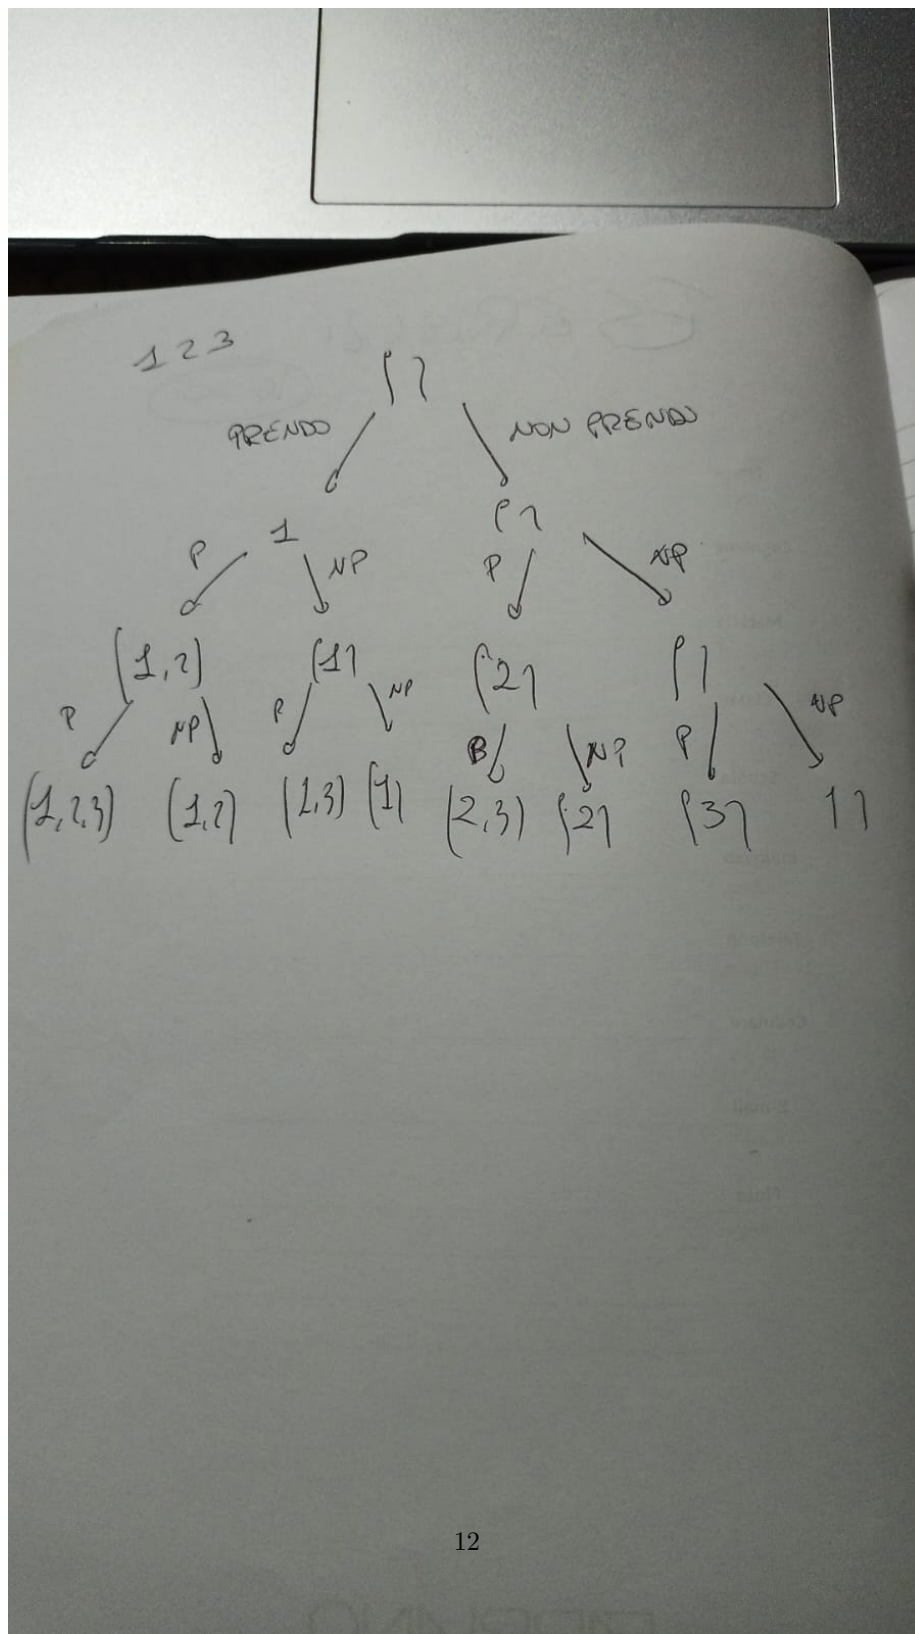 1 2 3
{ }
PRENDO NON PRENDO
1 { }
P NP P NP
{1,2} {1} {2} { }
P NP P NP B NP P NP
{1,2,3} {1,2} {1,3} {1} {2,3} {2} {3} { }
12